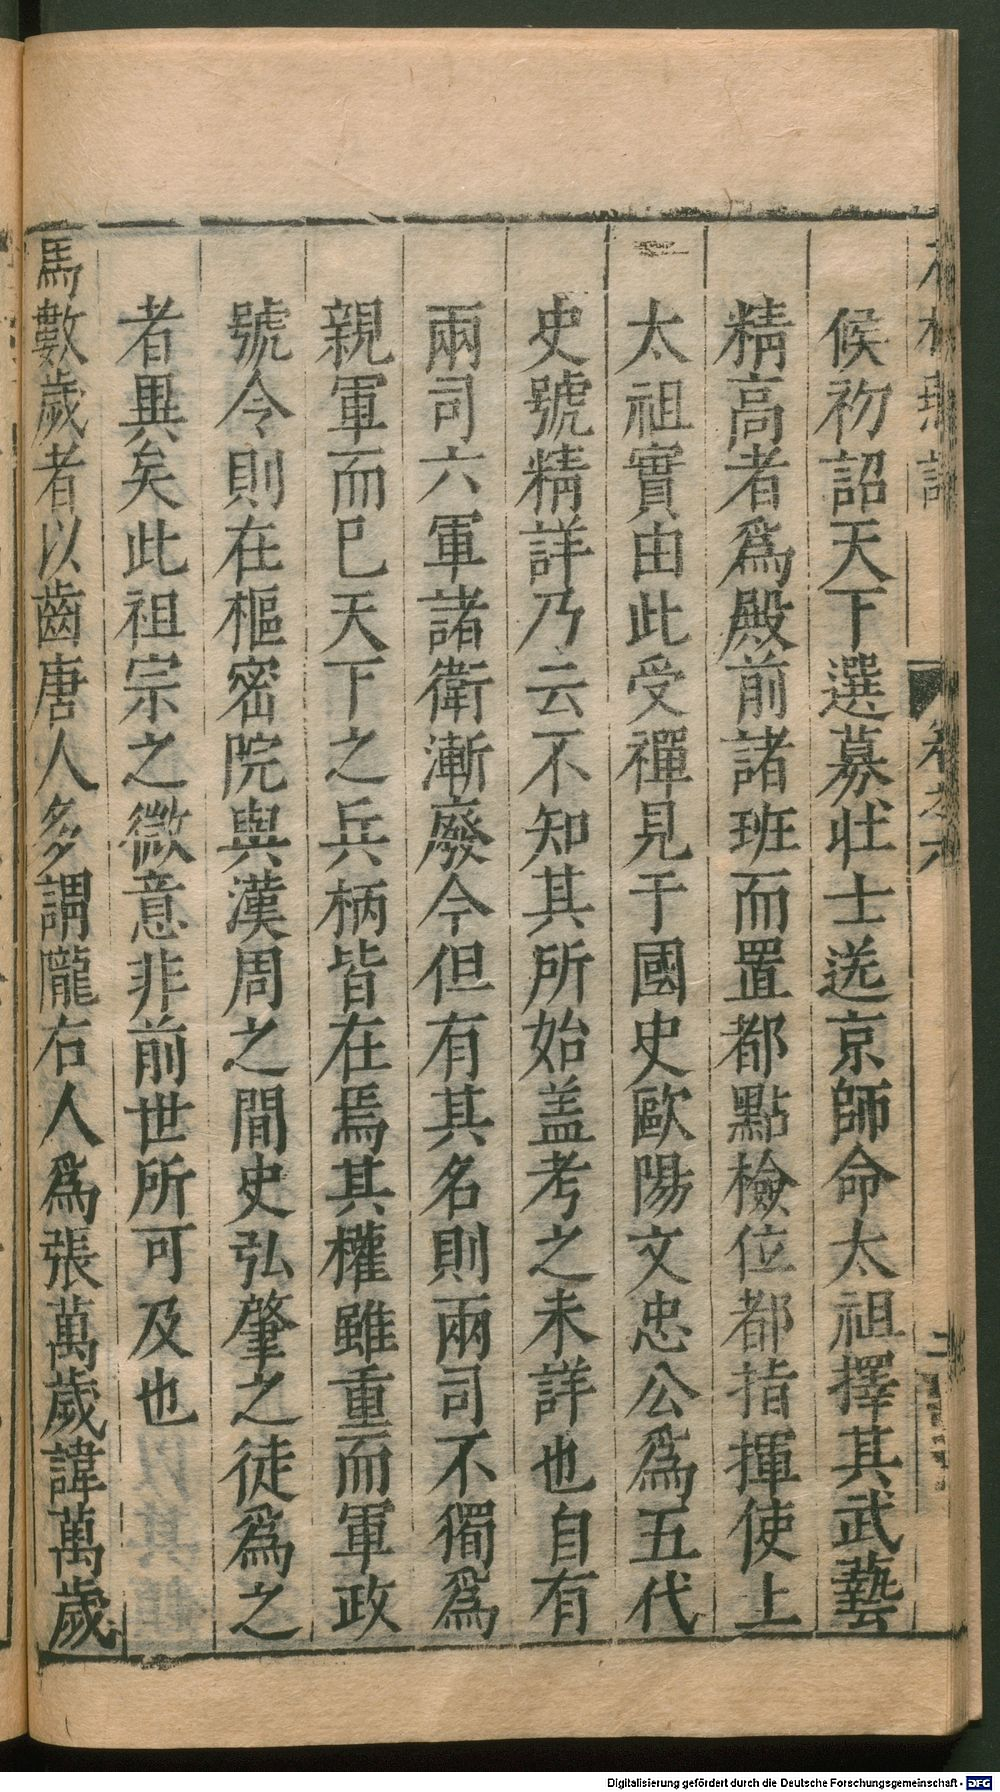 候初詔天下選募壯士送京師命太祖擇其武藝
精高者爲殿前諸班而置都點檢位都指揮使上
太祖實由此受禪見于國史歐陽文忠公爲五代
史號精詳乃云不知其所始盖考之未詳也自有
兩司六軍諸衛漸廢今但有其名則兩司不獨爲
親軍而已天下之兵柄皆在焉其權雖重而軍政
號令則在樞密院與漢周之間史弘肇之徒爲之
者異矣此祖宗之微意非前世所可及也
馬數歲者以齒唐人多謂隴右人爲張萬歲諱萬歲
卷之六
Digitalisierung gefördert durch die Deutsche Forschungsgemeinschaft - DFG